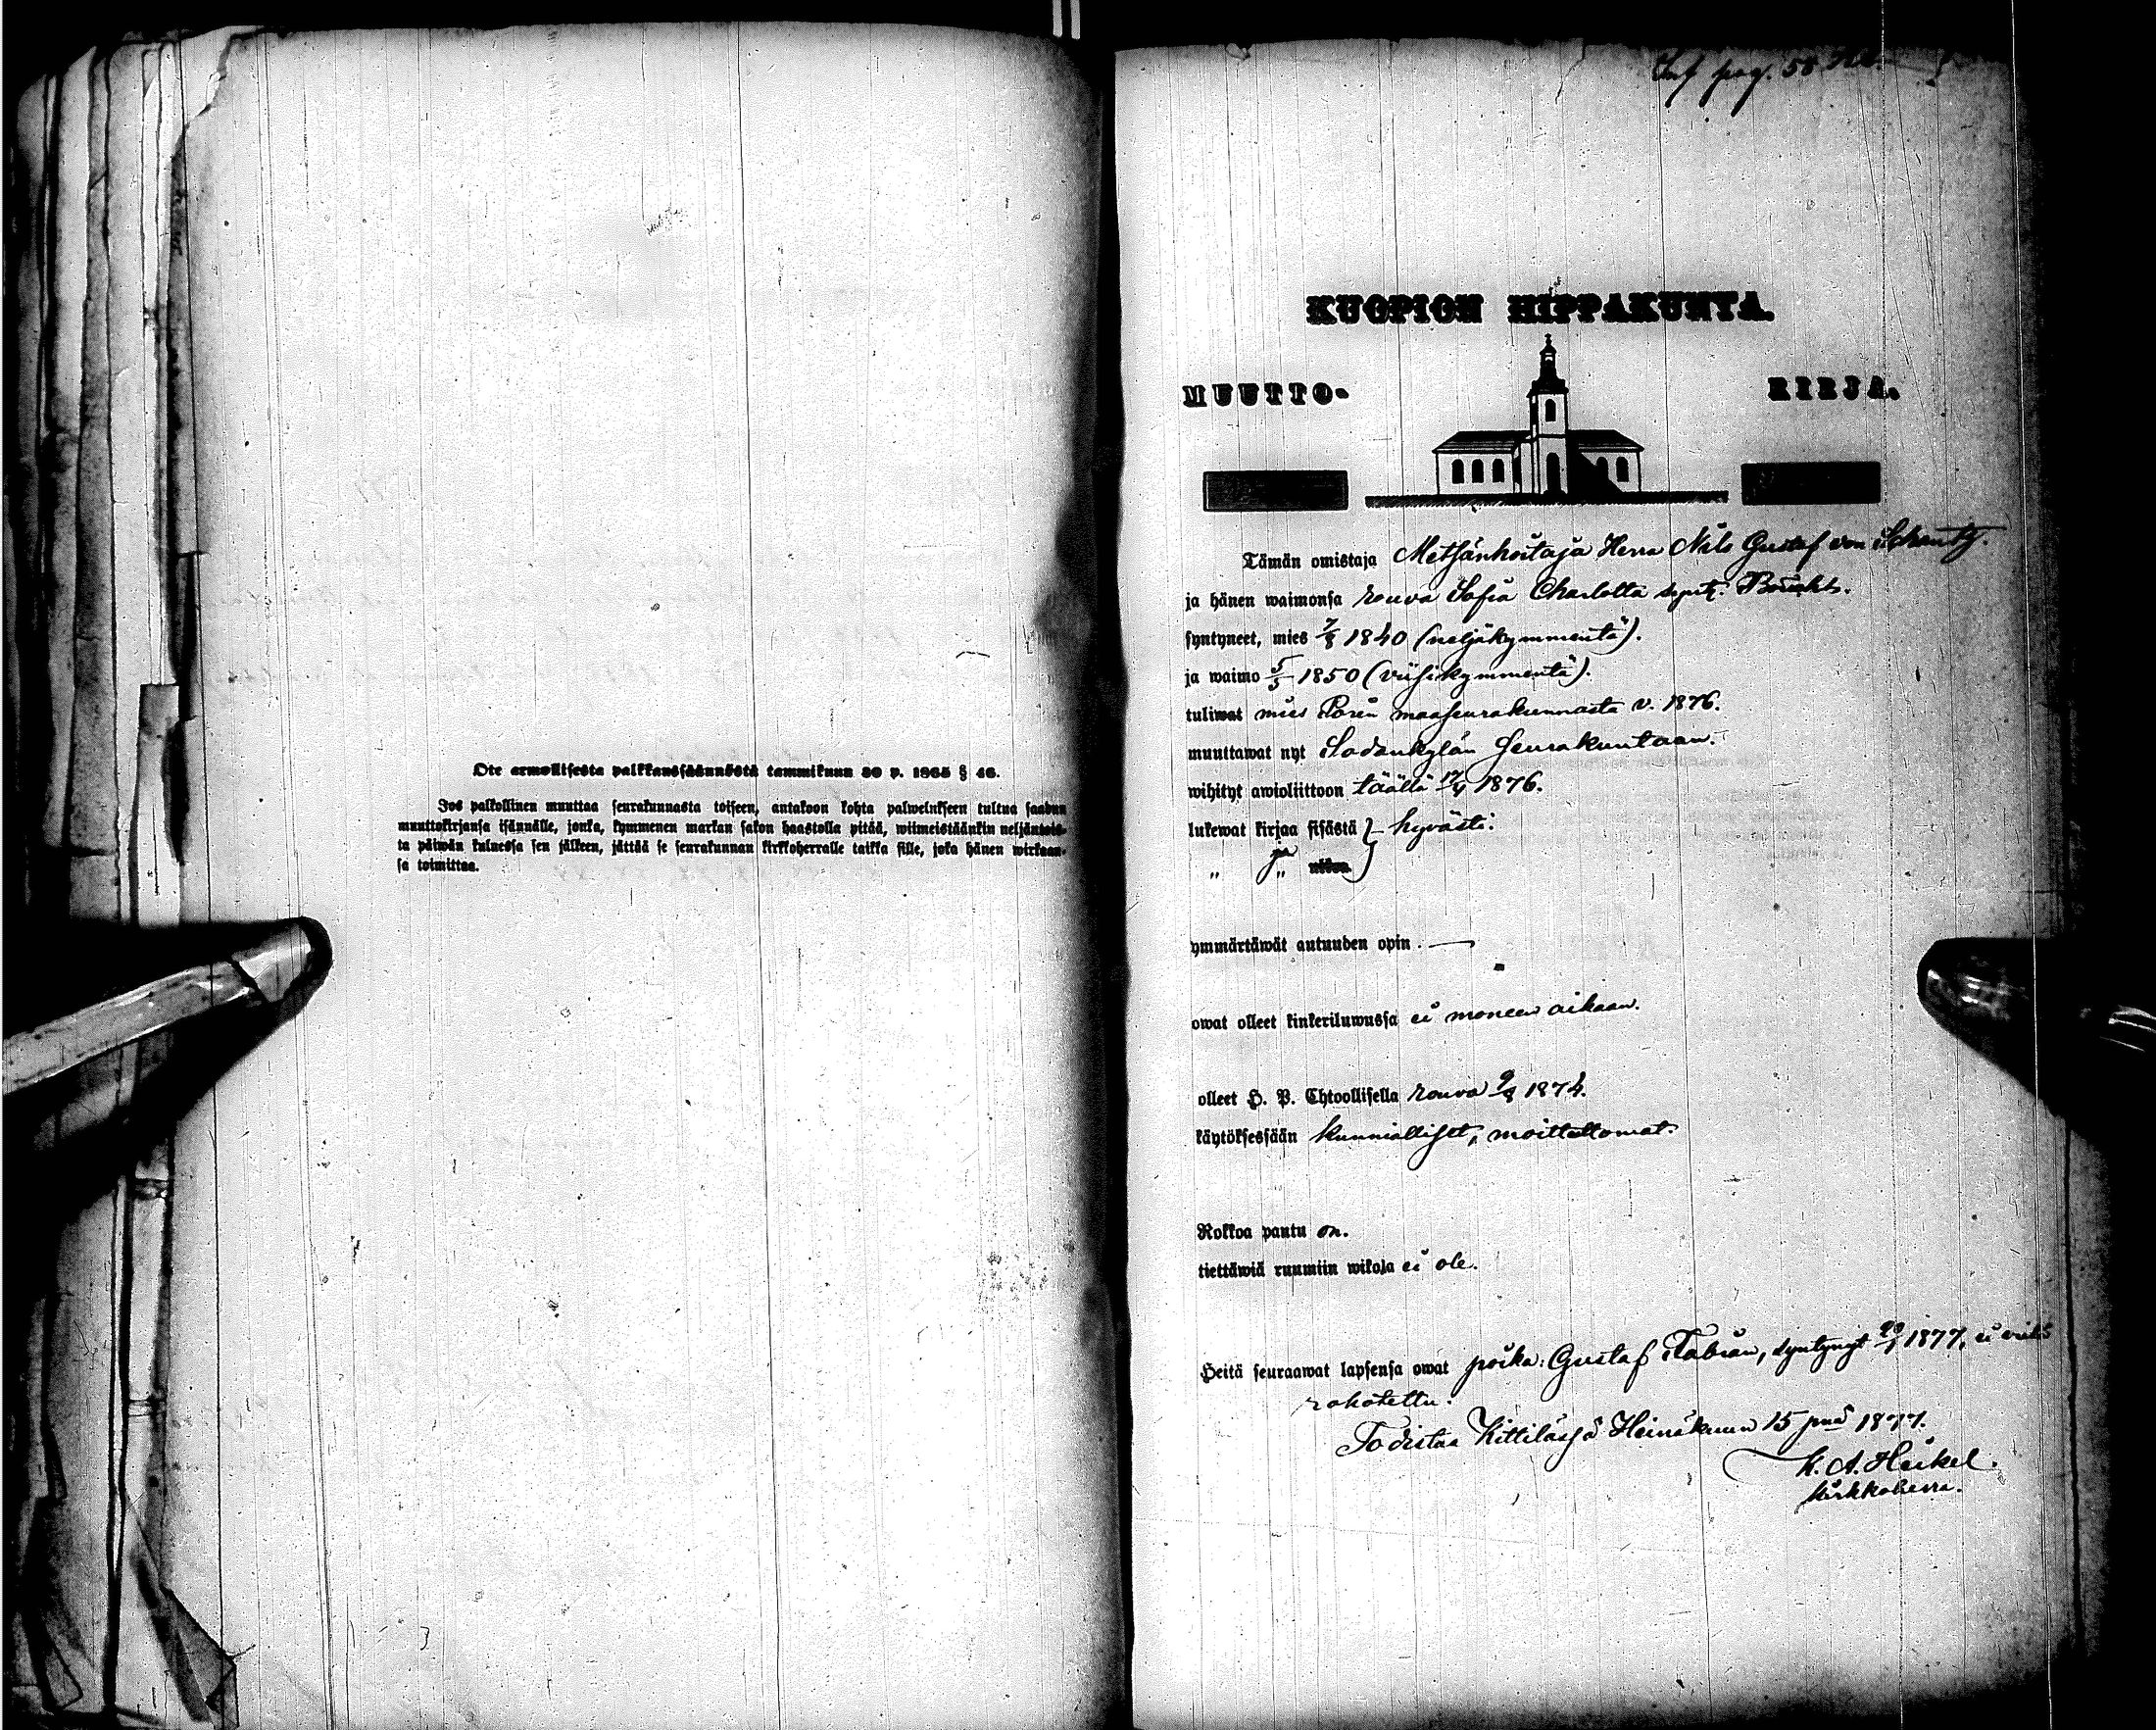 Ote armollisesta palkkaussäännöstä tammikuun 30 p. 1865 § 46.
Jos palkollinen muuttaa seurakunnasta toiseen, antakoon kohta palwelukseen tultua saadun
muuttokirjansa isännälle, jonka, kymmenen markan sakon haastolla pitää, wiimeistäänkin neljäntois-
ta päiwän kuluessa sen jälkeen, jättää se seurakunnan kirkkoherralle taikka sille, joka hänen wirkaan-
sa toimittaa.
Inf pag. 58
KUOPION HIPPAKUNTA.
MUUTTO- KIRJA.
Tämän omistaja Metsänhoitaja Herra Nils Gustaf von Schantz.
ja hänen waimonsa rouva Sofia Charlotta synt.
syntyneet, mies 7/8 1840 (neljäkymmentä).
ja waimo 5/5 1850 (viisikymmentä).
tuliwat mies Porin maaseurakunnasta v. 1876.
muuttawat nyt Sodankylän seurakuntaan.
wihityt awioliittoon täällä 17/4 1876.
lukewat kirjaa sisästä } hyvästi.
„ ja „ ulkoa
ymmärtäwät autuuden opin. —
owat olleet kinkeriluwussa ei moneen aikaan.
olleet H. P. Ehtoollisella rouva 9/8 1874.
käytöksessään kunnialliset, moitteettomat.
Rokkoa pantu on.
tiettäwiä ruumiin wikoja ei ole.
Heitä seuraawat lapsensa owat poika: Gustaf Fabian, syntynyt 1877, ei vielä
rokotettu.
Todistaa Kittilässä Heinäkuun 15 pnä 1877.
K. A. Heikel.
kirkkoherra.